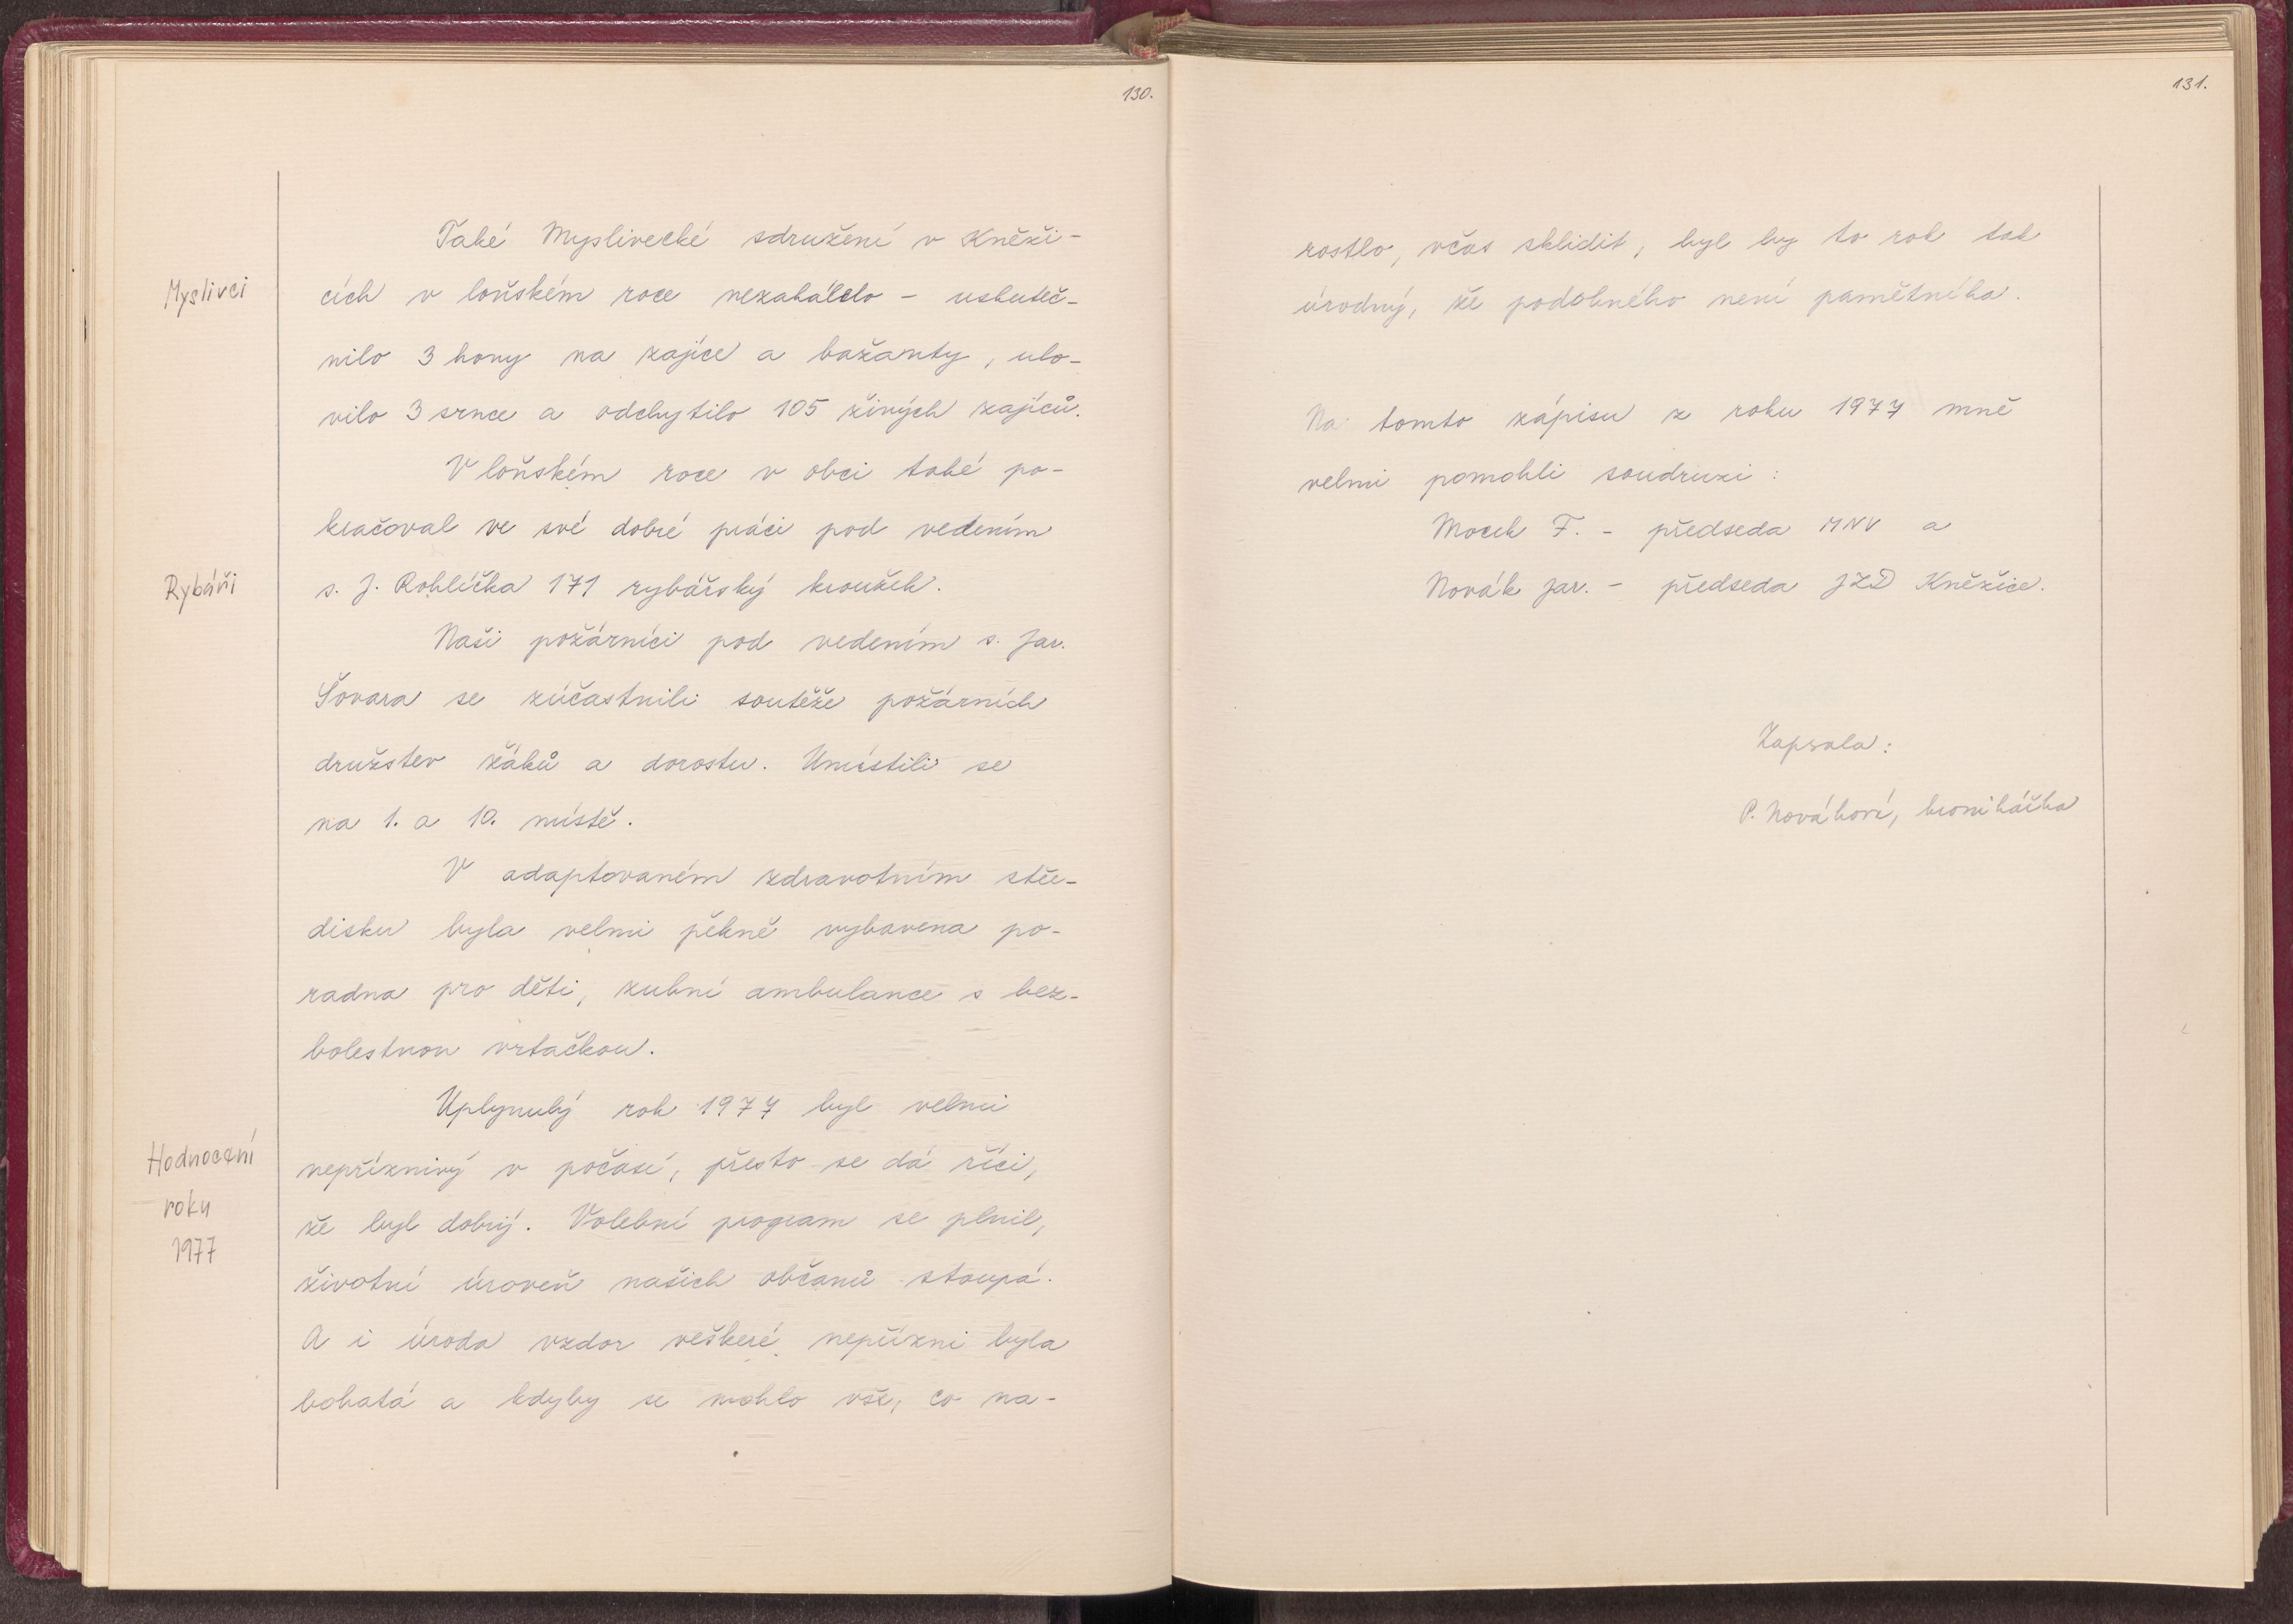 130.
Také Myslivecké sdružení v Kněži-
Myslivci
cích v loňském roce nezahálelo - uskuteč-
nilo 3 hony na zajíce a bažanty, ulo-
vilo 3 srnce a odchytilo 105 živých zajíců.
V loňském roce v obci také po-
kračoval ve své dobré práci pod vedením
Rybáři
s. J. Rohlíčka 171 rybářský kroužek.
Naši požárníci pod vedením s. Jar.
Šovara se zúčastnili soutěže požárních
družstev žáků a dorostu. Umístili se
na 1. a 10. místě.
V adaptovaném zdravotním stře-
disku byla velmi pěkně vybavena po-
radna pro děti, zubní ambulance s bez-
bolestnou vrtačkou.
Uplynulý rok 1977 byl velmi
Hodnocení
roku
1977
nepříznivý v počasí, přesto se dá říci,
že byl dobrý. Volební program se plnil,
životní úroveň našich občanů stoupá.
A i úroda vzdor veškeré nepřízni byla
bohatá a kdyby se mohlo vše, co na-
131.
rostlo, včas sklidit, byl by to rok tak
úrodný, že podobného není pamětníka.
Na tomto zápisu z roku 1977 mně
velmi pomohli soudruzi:
Mocek F. - předseda MNV a
Novák Jar. - předseda JZD Kněžice.
Zapsala:
P. Nováková, kronikářka